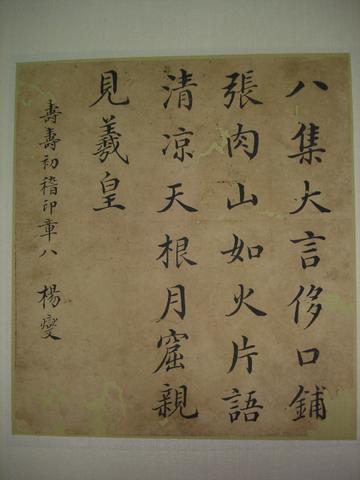 八集大言侈口鋪
張肉山如火片語
清凉天根月窟親
見羲皇
壽壽初稽印章八 楊燮